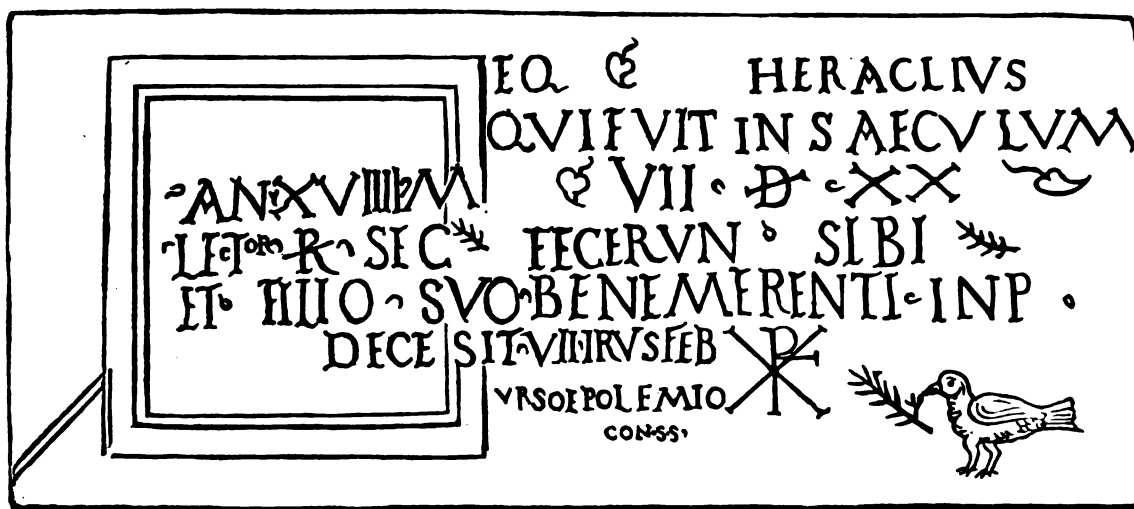 EQ HERACLIVS
QVI FVIT IN SAECVLVM
AN XVIIII M VII D XX
LECTOR R SEC FECERVN SIBI
ET FILIO SVO BENEMERENTI IN P
DECESIT VII IRVS FEB
VRSO E POLEMIO
CONSS